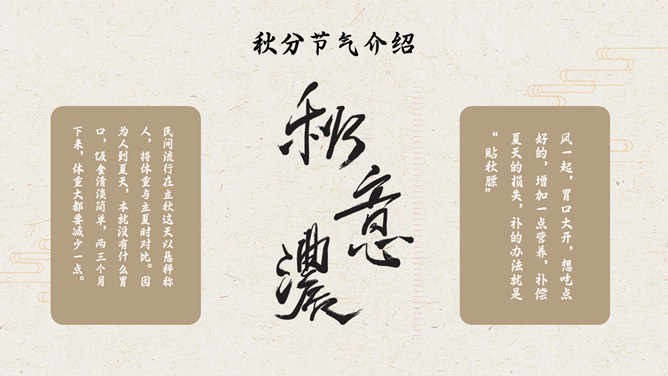 秋分节气介绍
风一起，胃口大开，想吃点
好的，增加一点营养，补偿
夏天的损失，补的办法就是
“贴秋膘”
秋
意
濃
民间流行在立秋这天以悬秤称
人，将体重与立夏时对比。因
为人到夏天，本就没有什么胃
口，饭食清淡简单，两三个月
下来，体重大都要减少一点。